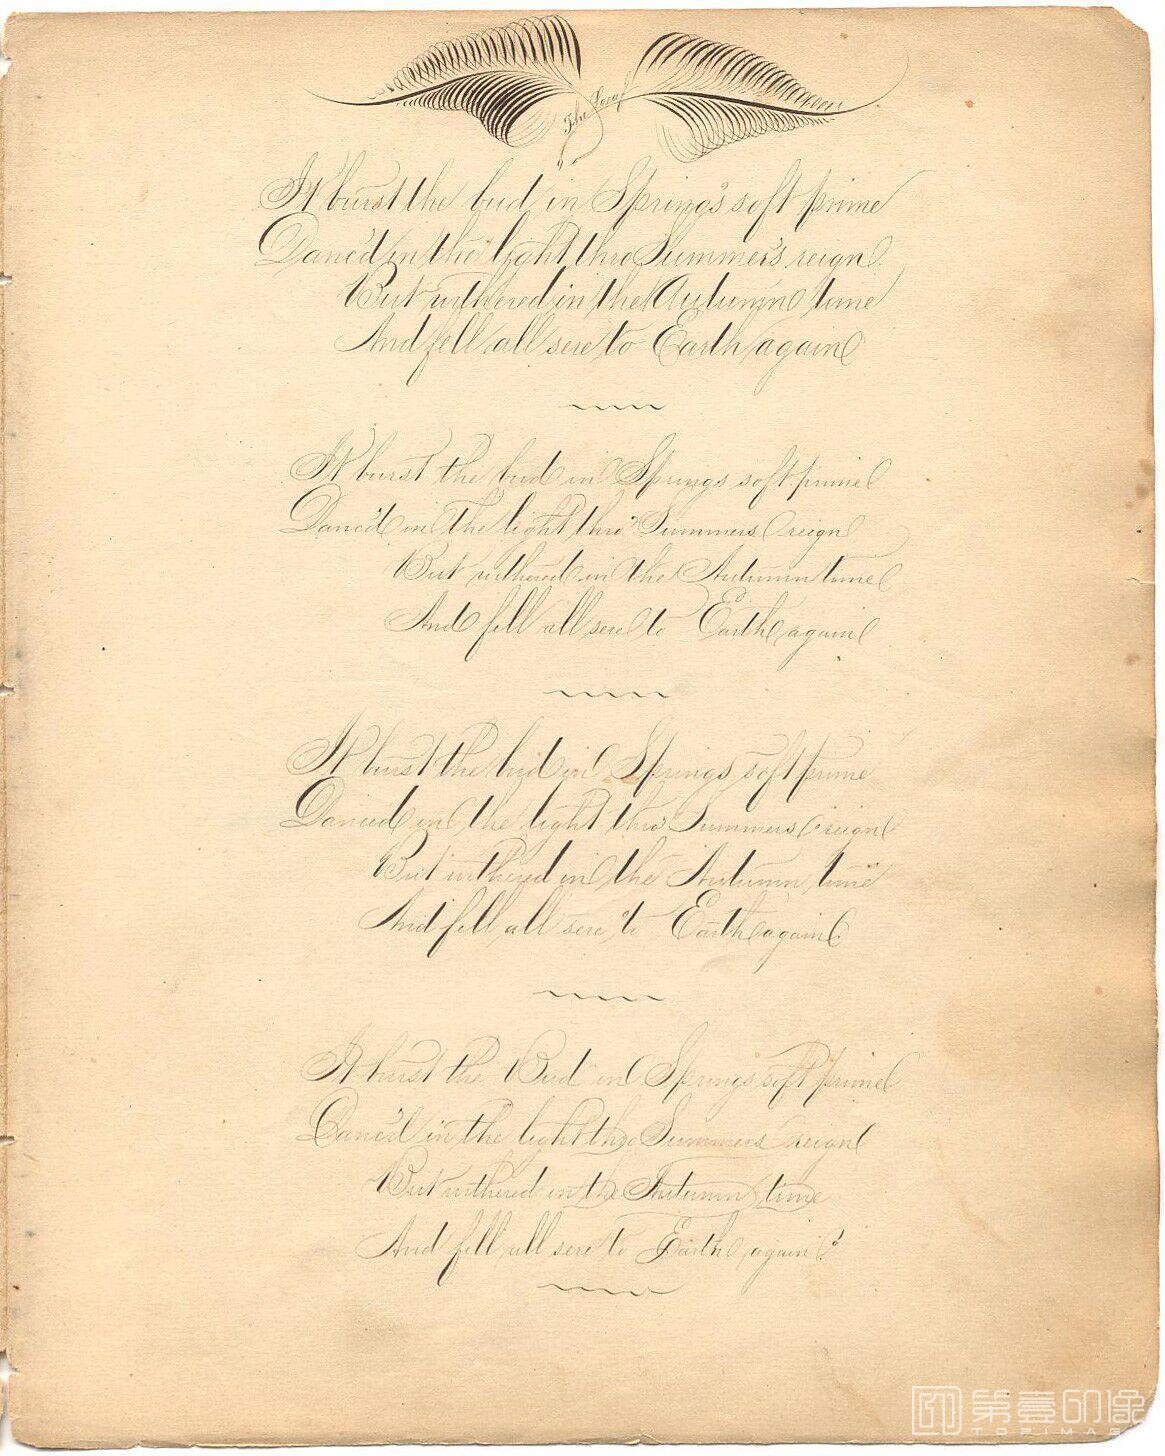 The Leaf
It burst the bud in Spring's soft prime
Danc'd in the light thro Summer's reign.
But withered in the Autumn time
And fell all sere to Earth again
It burst the bud in Springs soft prime
Danc'd in the light thro' Summers reign
But withered in the Autumn time
And fell all sere to Earth again
It burst the bud in Springs soft prime
Danced in the light thro' Summers reign
But withered in the Autumn time
And fell all sere to Earth again.
It burst the Bud in Springs soft prime
Danc'd in the light thro Summers reign
But withered in the Autumn time
And fell all sere to Earth again.
第壹印像
TOPIMAGE